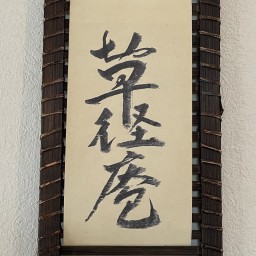 草径庵